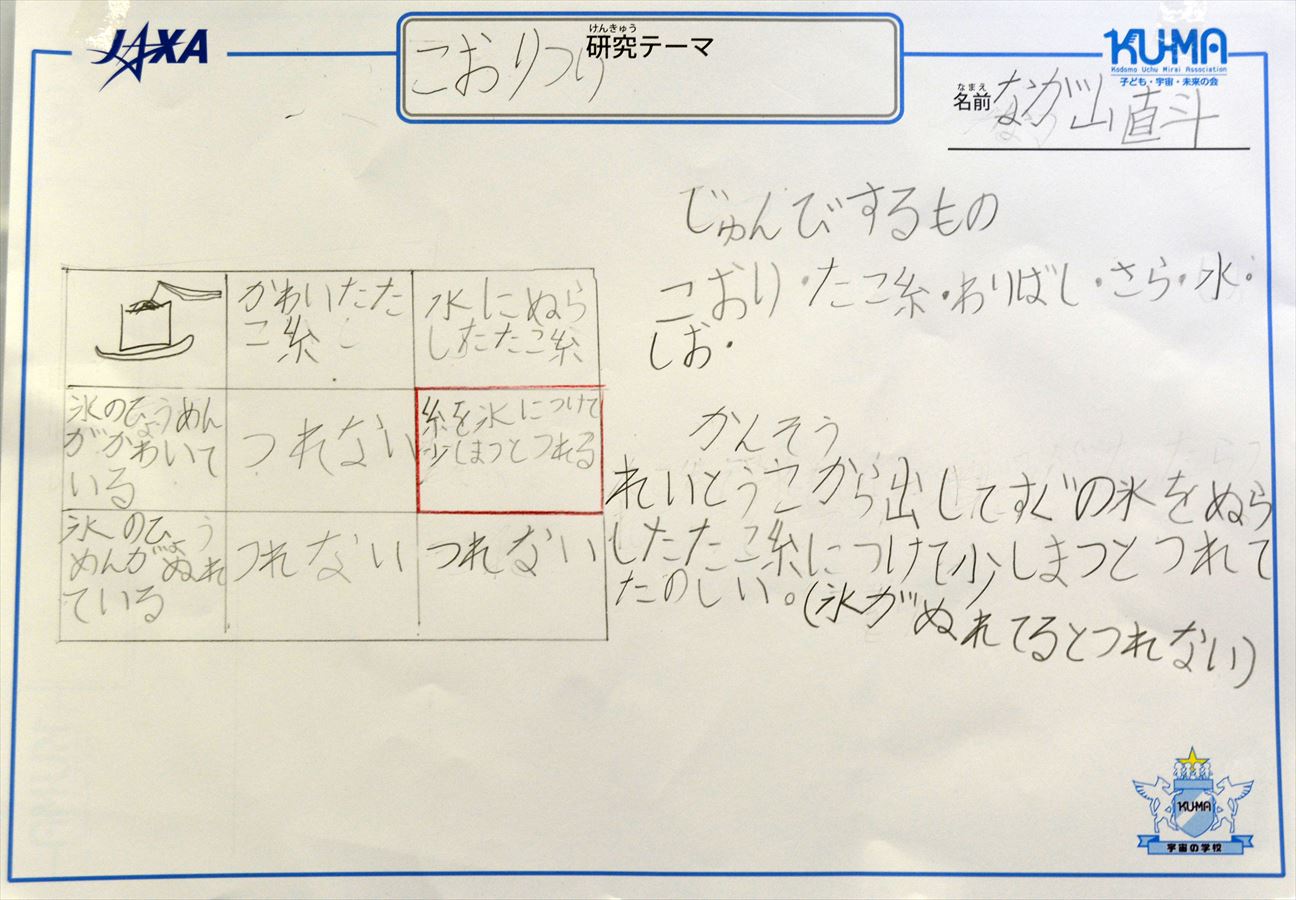 JAXA
けんきゅう
研究テーマ
こおりつり
KU-MA
Kodomo Uchu Mirai Association
子ども・宇宙・未来の会
なまえ
名前
なが山直斗
じゅんびするもの
こおり・たこ糸・わりばし・さら・水・
しお・
かわいたた
こ糸
水にぬら
したたこ糸
氷のひょうめん
がかわいて
いる
つれない
糸を氷につけて
少しまつとつれる
氷のひょう
めんがぬれ
ている
つれない
つれない
かんそう
れいとうこから出してすぐの氷をぬら
したたこ糸につけて少しまつとつれて
たのしい。(氷がぬれてるとつれない)
KU-MA
宇宙の学校